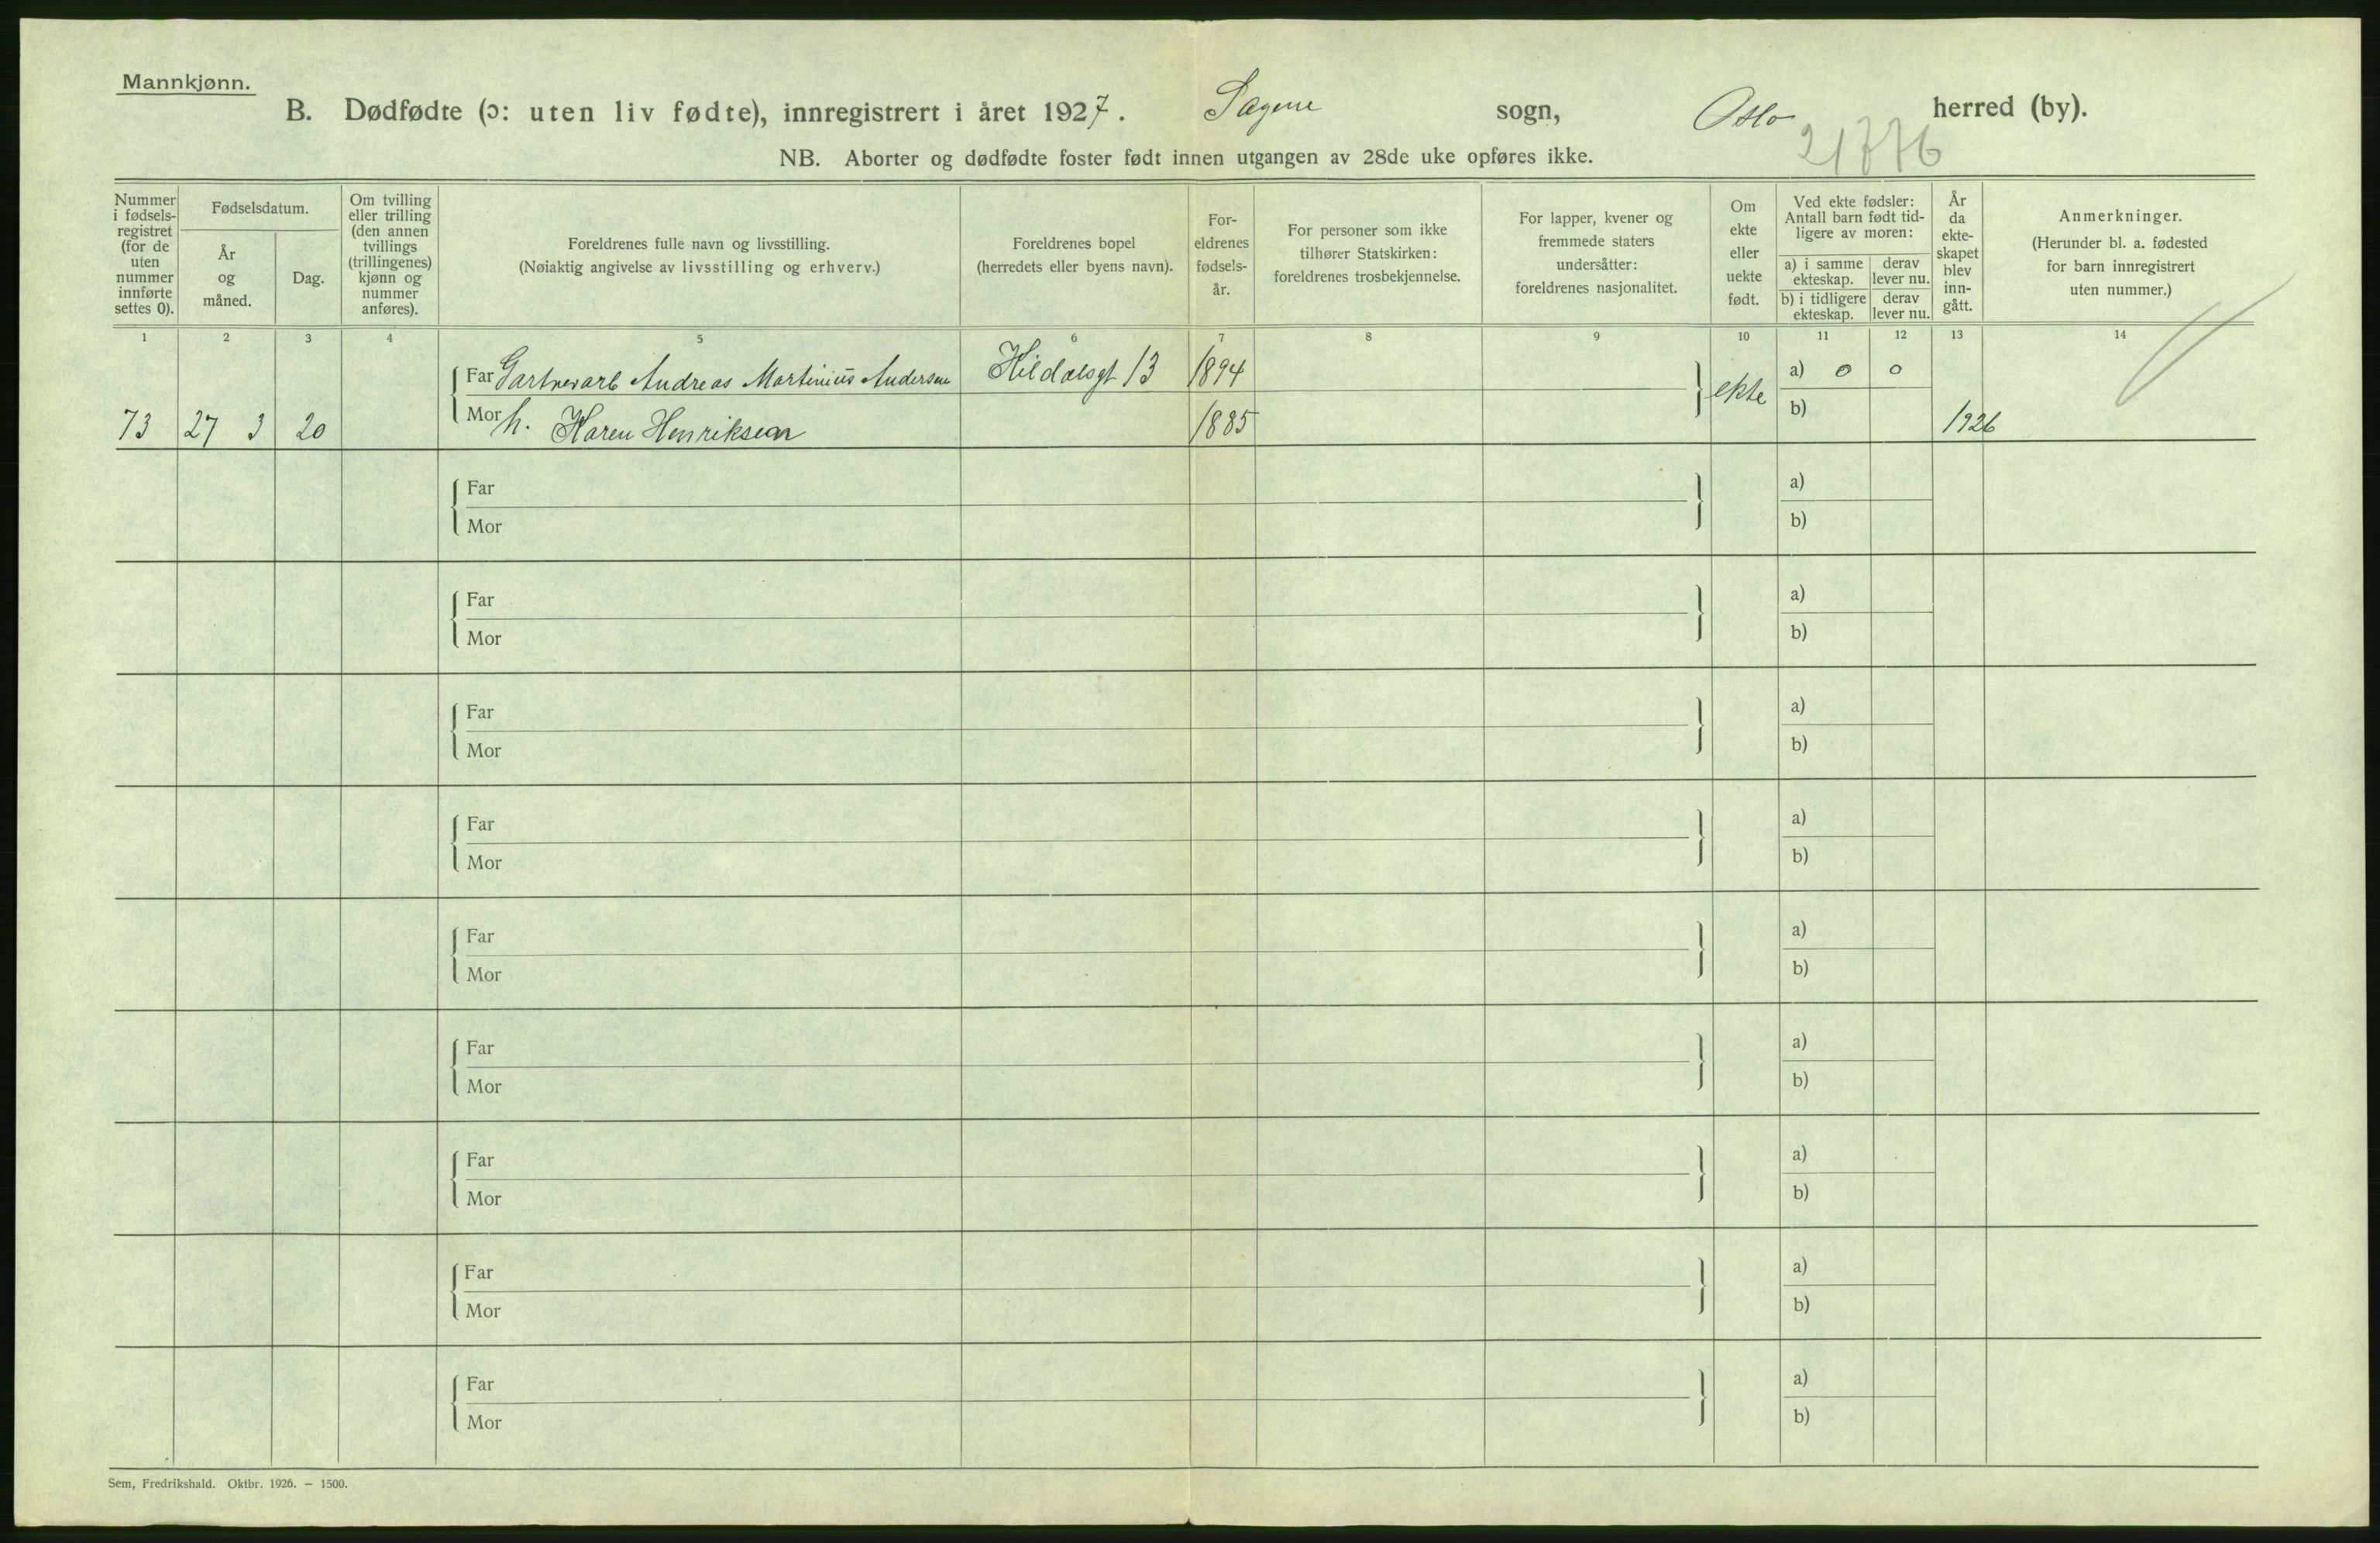 Mannkjønn.
B. Dødfødte (ɔ: uten liv fødte), innregistrert i året 1927. Sagene sogn, Oslo herred (by).
21776
NB. Aborter og dødfødte foster født innen utgangen av 28de uke opføres ikke.
Nummer i fødsels-registret (for de uten nummer innførte settes 0).
Fødselsdatum.
År og måned.
Dag.
Om tvilling eller trilling (den annen tvillings (trillingenes) kjønn og nummer anføres).
Foreldrenes fulle navn og livsstilling.
(Nøiaktig angivelse av livsstilling og erhverv.)
Foreldrenes bopel
(herredets eller byens navn).
For-eldrenes fødsels-år.
For personer som ikke tilhører Statskirken: foreldrenes trosbekjennelse.
For lapper, kvener og fremmede staters undersåtter: foreldrenes nasjonalitet.
Om ekte eller uekte født.
Ved ekte fødsler: Antall barn født tid-ligere av moren:
a) i samme ekteskap.
derav lever nu.
b) i tidligere ekteskap.
derav lever nu.
År da ekte-skapet blev inn-gått.
Anmerkninger.
(Herunder bl. a. fødested for barn innregistrert uten nummer.)
1 2 3 4 5 6 7 8 9 10 11 12 13 14
Far Gartnerarb Andreas Martinius Andersen Hildalsgt 13 1894 ekte a) 0 0
73 27 3 20 Mor h. Karen Henriksen 1885 b) 1926
Far a)
Mor b)
Far a)
Mor b)
Far a)
Mor b)
Far a)
Mor b)
Far a)
Mor b)
Far a)
Mor b)
Far a)
Mor b)
Far a)
Mor b)
Far a)
Mor b)
Sem, Fredrikshald. Oktbr. 1926. — 1500.